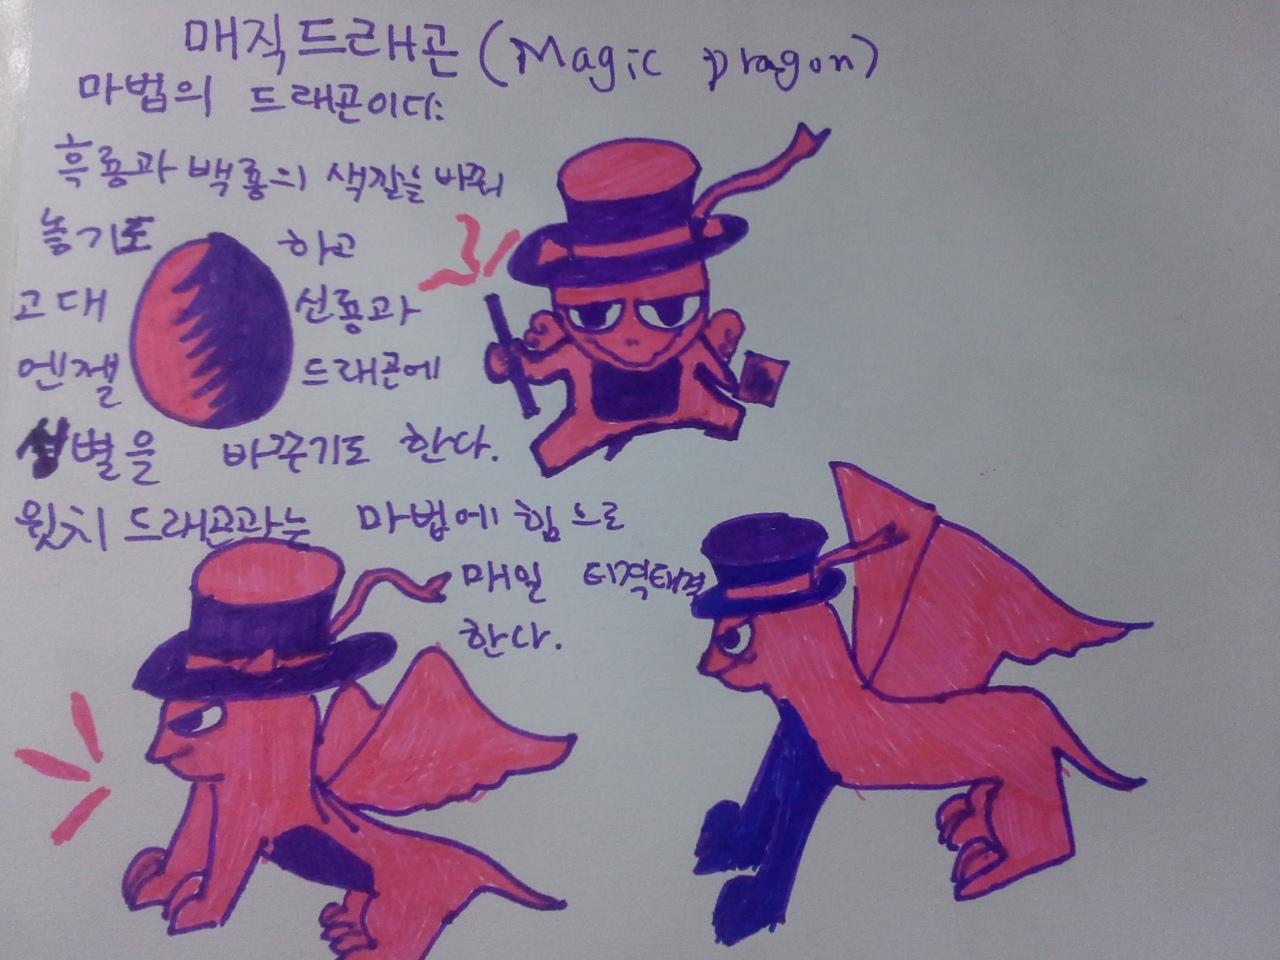 매직드래곤 (Magic Dragon)
마법의 드래곤이다.
흑룡과 백룡의 색깔을 바꿔
놓기도 하고
고대 선룡과
엔젤 드래곤에
성별을 바꾸기도 한다.
윗치드래곤과는 마법에 힘으로
매일 티격태격
한다.